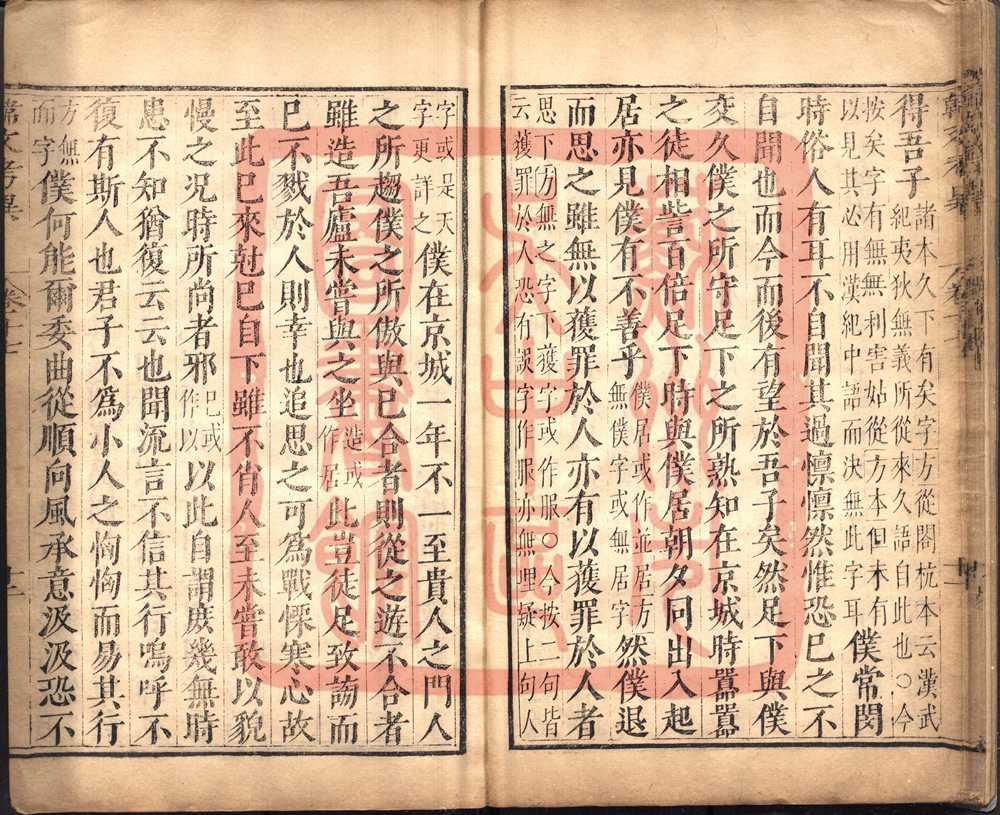 得吾子諸本久下有矣字方從閣杭本云漢武紀夷狄無義所從來久語自此也○今
按矣字有無無利害姑從方本但未有以見其必用漢紀中語而決無此字耳僕常閔
時俗人有耳不自聞其過懍懍然惟恐巳之不
自聞也而今而後有望於吾子矣然足下與僕
交久僕之所守足下之所熟知在京城時囂囂
之徒相訾百倍足下時與僕居朝夕同出入起
居亦見僕有不善乎僕居或作並居方無僕字或無居字然僕退
而思之雖無以獲罪於人亦有以獲罪於人者
思下方無之字下獲字或作服○今按二句皆云獲罪於人恐有誤字作服亦無理疑上句人
字或是天字更詳之僕在京城一年不一至貴人之門人
之所趨僕之所傲與巳合者則從之遊不合者
雖造吾廬未嘗與之坐造或作居此豈徒足致謗而
巳不戮於人則幸也追思之可爲戰慄寒心故
至此巳來尅巳自下雖不肖人至未嘗敢以貌
慢之况時所尚者邪巳或作以以此自謂庶幾無時
患不知猶復云云也聞流言不信其行嗚呼不
復有斯人也君子不爲小人之恟恟而易其行
方無而字僕何能爾委曲從順向風承意汲汲恐不